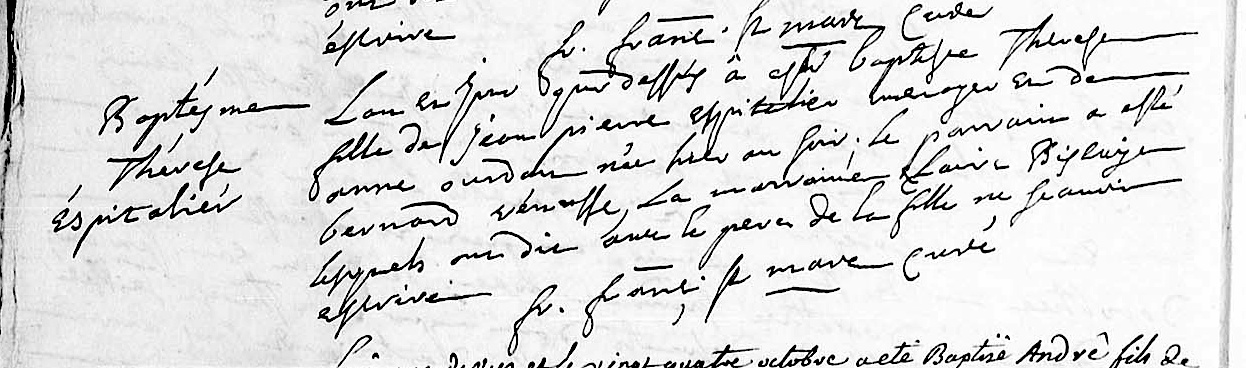 escrire
fr. franc. st marc Curé
Baptesme
Therese
espitalier
L'an et jour que dessus a esté baptisée Therese
fille de Jean pierre espitalier menager et de
anne née hier au soir. le parrain a esté
bernard la marraine Claire
lesquels ont dit avec le pere de la fille ne scavoir
escrire fr. franc. st marc Curé
vingt quatre octobre a eté Baptisé André fils de